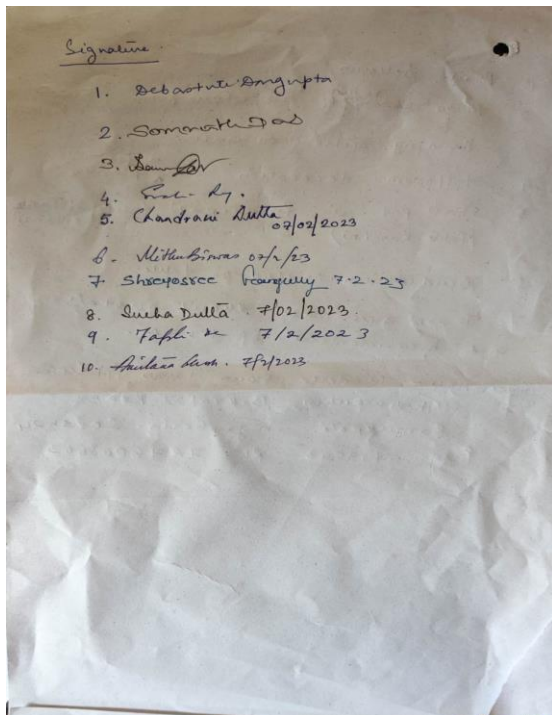 Signature.
1. Debastuti Dasgupta
2. Somnath Das
3.
4.
5. Chandrani Dutta 07/02/2023
6. Mithu Biswas 07/2/23
7. Shreyosree Ganguly 7.2.23
8. Sneha Dutta 7/02/2023.
9. 7/2/2023
10. 7/2/2023